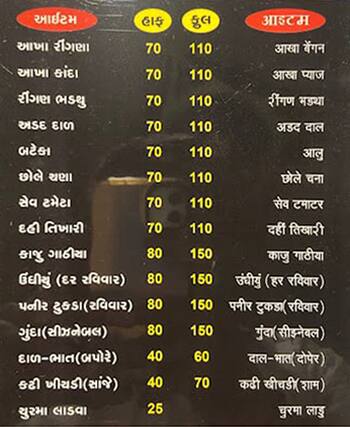 આઈટમ હાફ ફુલ आइटम
આખા રીંગણા 70 110 आखा बेंगन
આખા કાંદા 70 110 आखा प्याज
રીંગણ ભડથુ 70 110 रींगण भडथा
અડદ દાળ 70 110 अडद दाल
બટેકા 70 110 आलु
છોલે ચણા 70 110 छोले चना
સેવ ટમેટા 70 110 सेव टमाटर
દહી તિખારી 70 110 दहीं तिखारी
કાજુ ગાઠીયા 80 150 काजु गाठीया
ઉંધીયું (દર રવિવાર) 80 150 उंधीयुं (हर रविवार)
પનીર ટુકડા(રવિવાર) 80 150 पनीर टुकडा(रविवार)
ગુંદા(સીઝનેબલ) 80 150 गुंदा(सीझनेबल)
દાળ-ભાત(બપોરે) 40 60 दाल-भात(दोपेर)
કઢી ખીચડી(સાંજે) 40 70 कढी खीचडी(शाम)
ચુરમા લાડવા 25 चुरमा लाडु